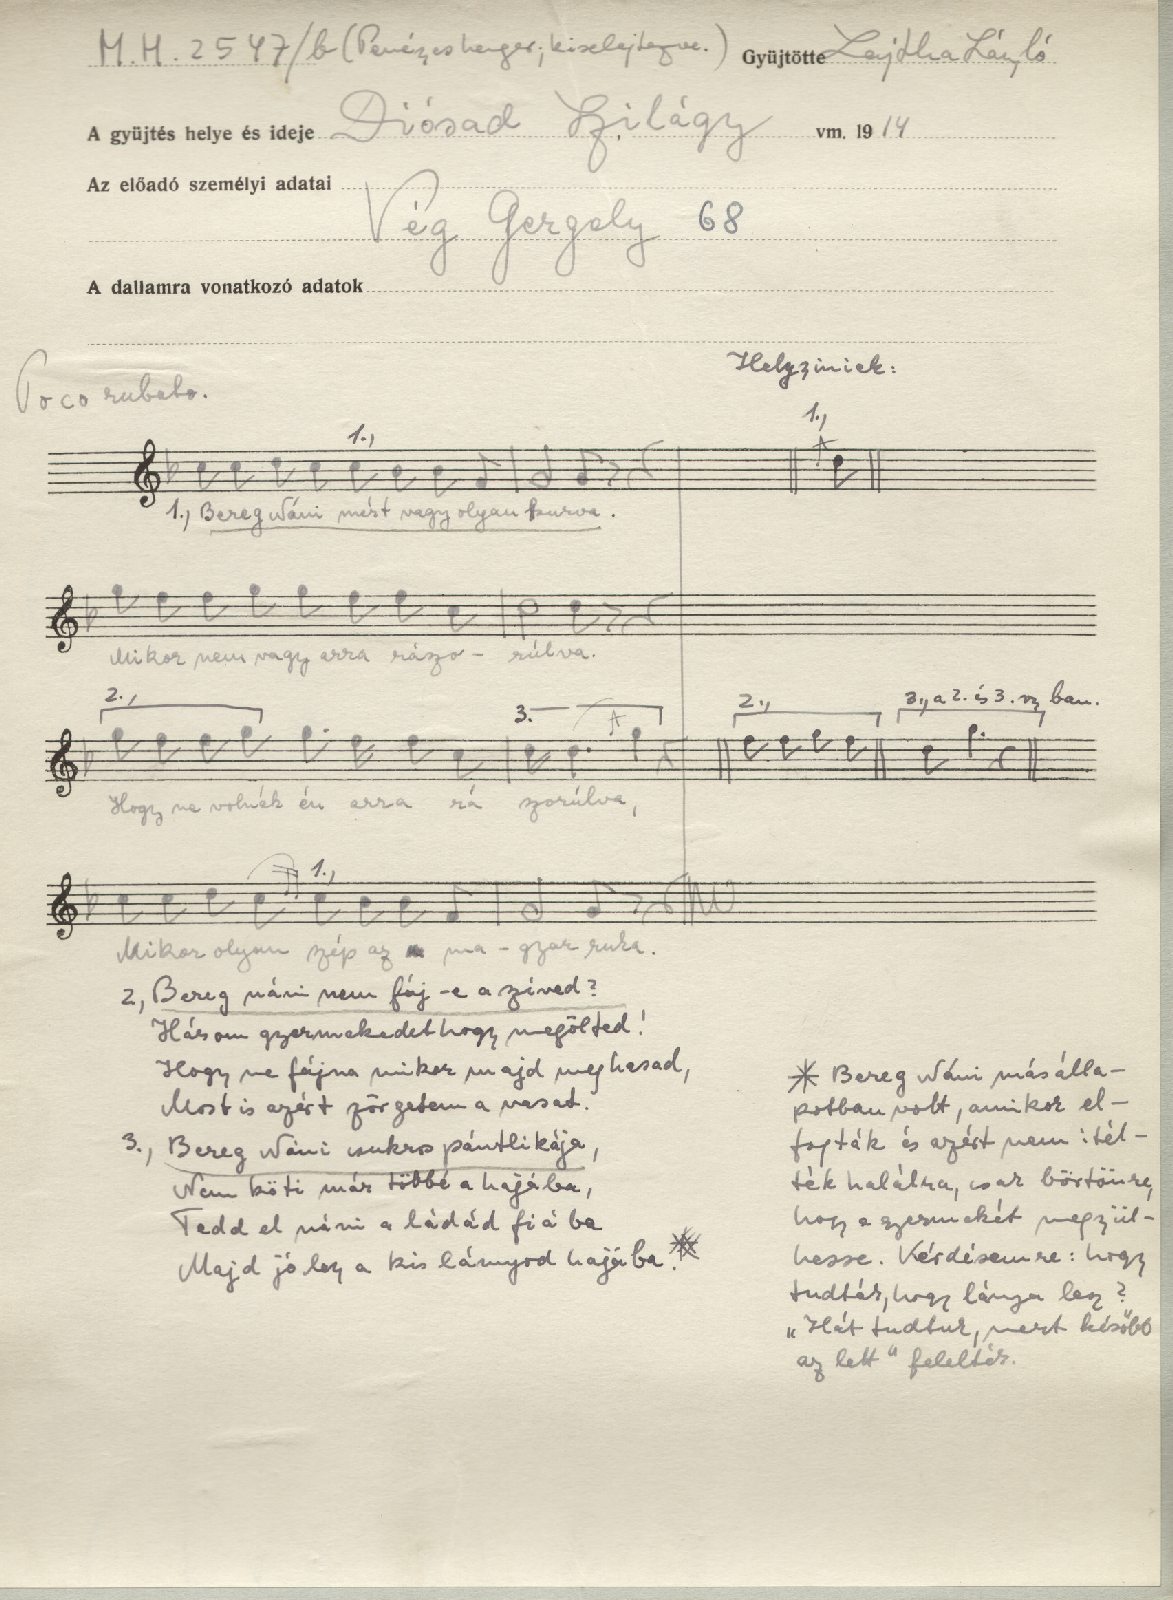 M. H. 2547/b (Penészes henger; kiselejtezve.) Gyüjtötte Lajtha László
A gyüjtés helye és ideje Diósad Szilágy vm. 1914
Az előadó személyi adatai
Vég Gergely 68
A dallamra vonatkozó adatok
Helyziniek:
Poco rubato.
1., 1.,
1., Bereg Náni mért vagy olyan kurva.
Mikor nem vagy arra rászo - rúlva.
2., 3. 2., 3., a 2. és 3. vsz ban.
Hogy ne volnék én arra rá szorúlva,
1.,
Mikor olyan szép az ma - gyar ruha.
2, Bereg náni nem fáj -e a szíved?
Három gyermekedet hogy megölted!
Hogy ne fájna mikor majd meghasad,
Most is azért zörgetem a vasat.
3., Bereg Náni csukros pántlikája,
Nem köti már többé a hajába,
Tedd el náni a ládád fiába
Majd jó lesz a kis lányod hajába. *
* Bereg Náni másálla-
potban volt, amikor el-
fogták és azért nem itél-
ték halálra, csak börtönre,
hogy a gyermekét megszül-
hesse. Kérdésemre: hogy
tudták, hogy lánya lesz?
„Hát tudtuk, mert később
az lett" felelték.